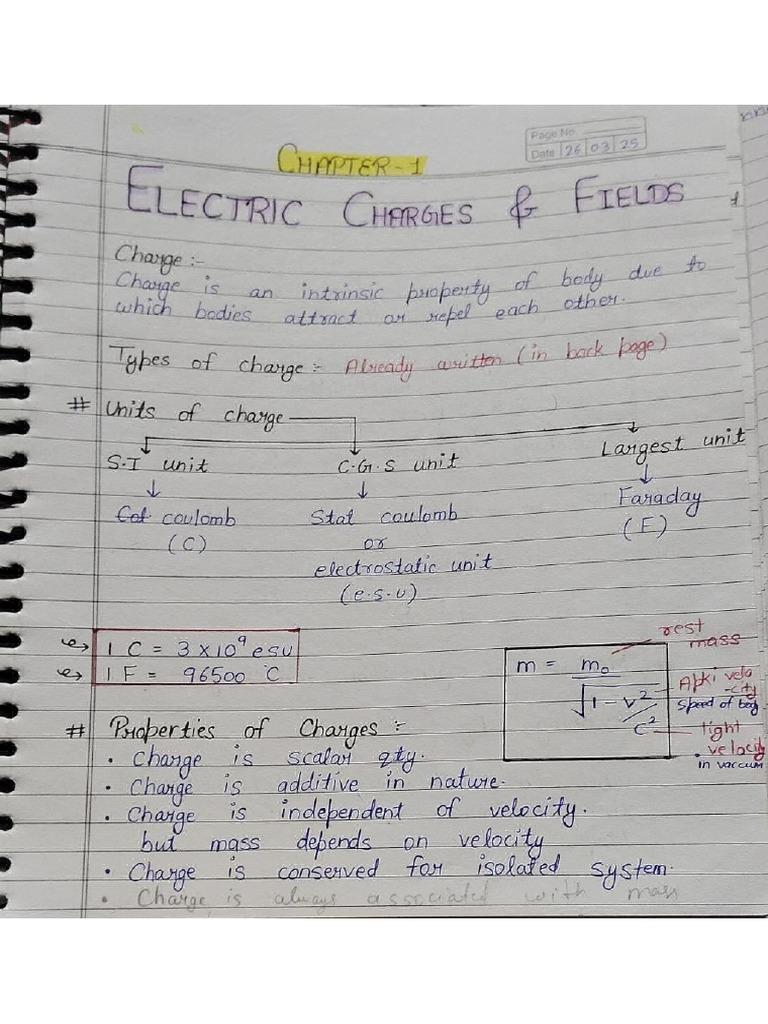 Page No.
Date 26 03 25
CHAPTER-1
ELECTRIC CHARGES & FIELDS
Charge :-
Charge is an intrinsic property of body due to
which bodies attract or repel each other.
Types of charge :- Already written (in back page)
# Units of charge
S.I unit C.G.S unit Largest unit
↓ ↓ ↓
Col coulomb Stat coulomb Faraday
(C) or (F)
electrostatic unit
(e.s.u)
1 C = 3 × 10⁹ esu
1 F = 96500 C
rest
mass
m = m₀
√1 - v²/c²
Apki velo
-city
speed of body
light
velocity
in vaccum
# Properties of Charges :-
• Charge is scalar qty.
• Charge is additive in nature.
• Charge is independent of velocity.
but mass depends on velocity
• Charge is conserved for isolated system.
• Charge is always associated with mass